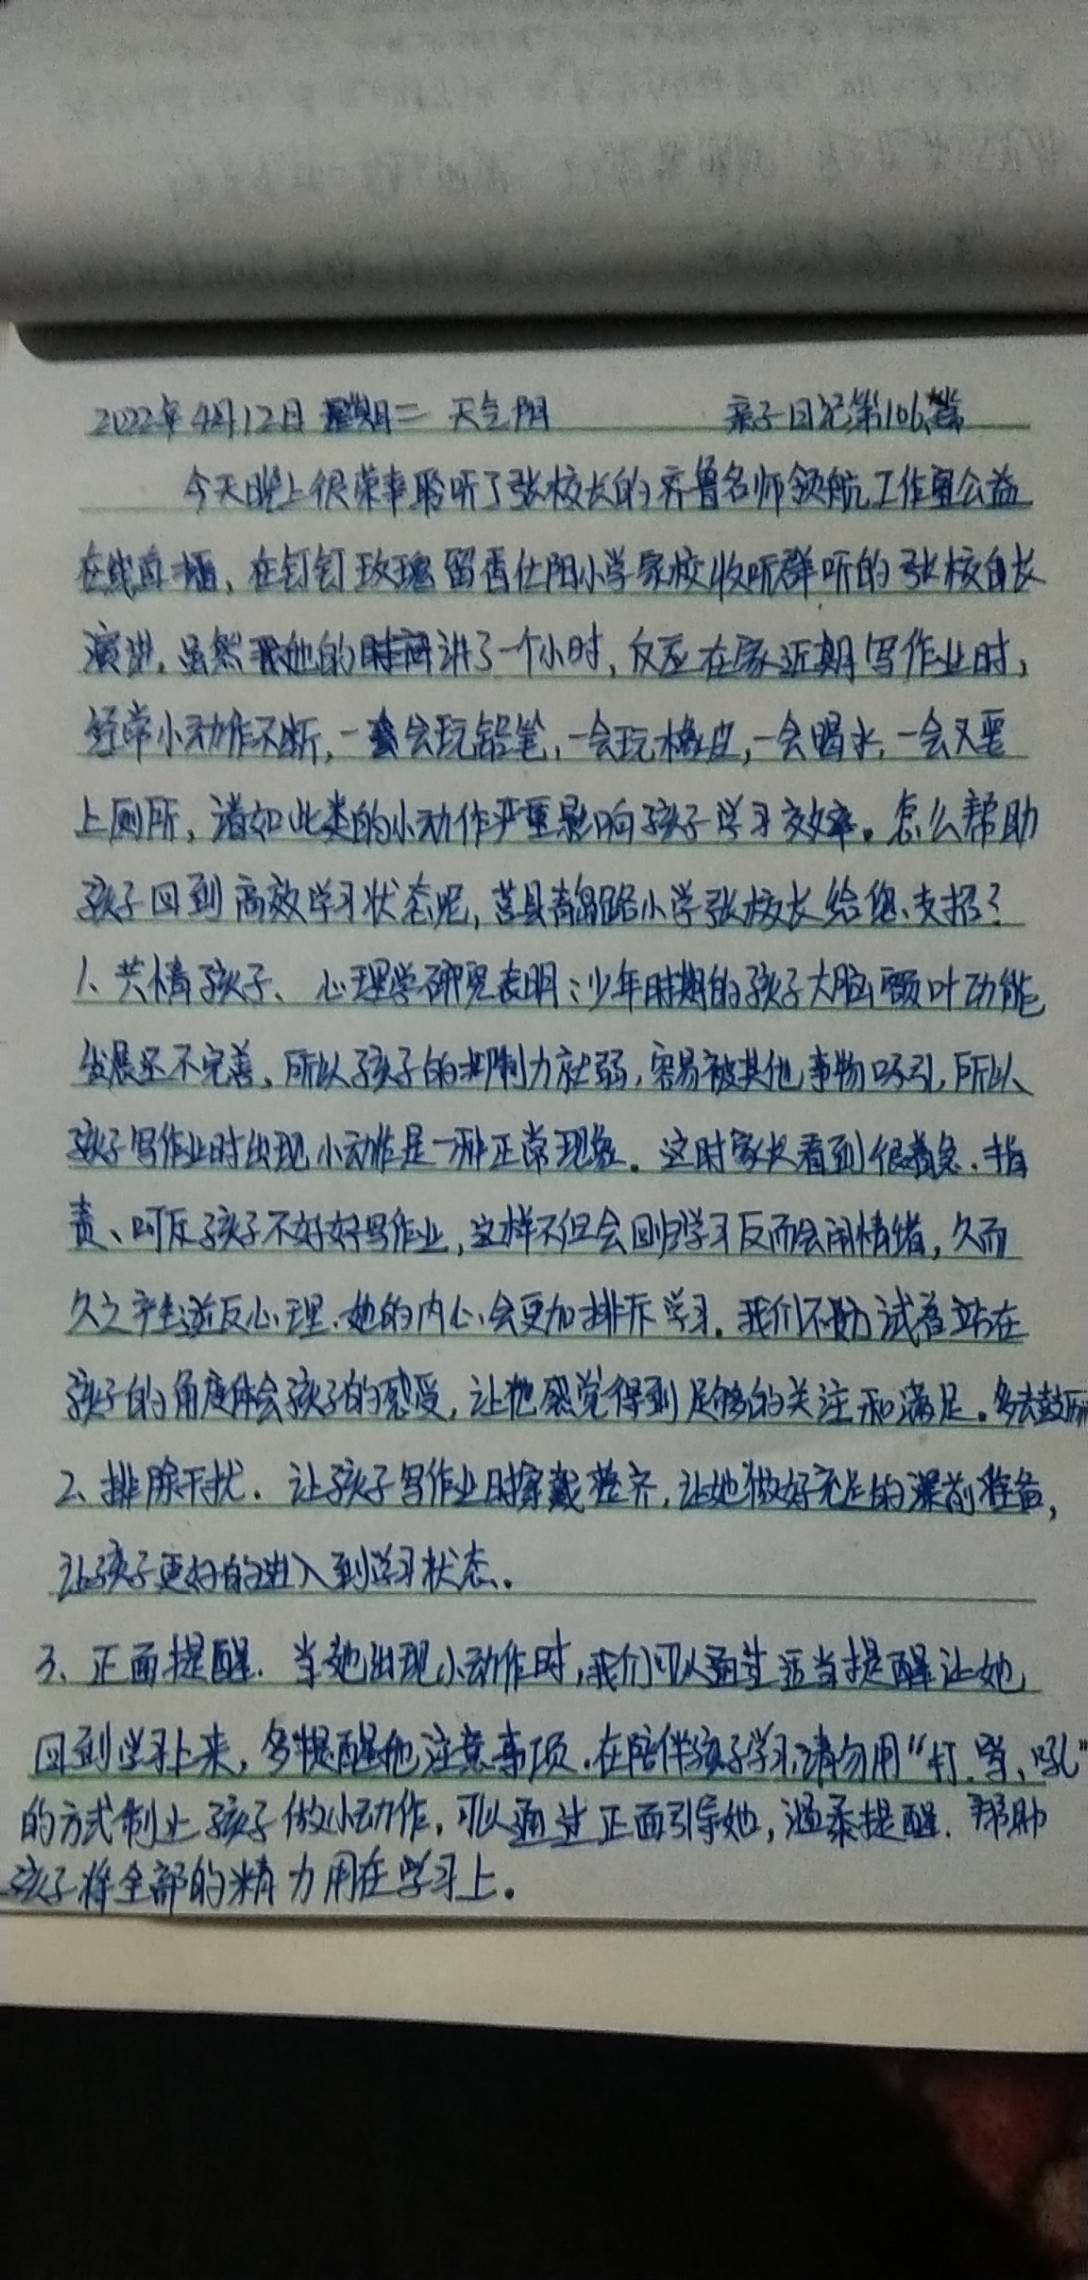 2022年4月12日 星期二 天气阴 亲子日记第106篇
今天晚上很荣幸聆听了张校长的齐鲁名师领航工作室公益
在线直播，在钉钉玫瑰留香仕阳小学家校收听群听的张校长
演讲，虽然他的时间讲了一个小时，反应在家近期写作业时，
经常小动作不断，一会玩铅笔，一会玩橡皮，一会喝水，一会又要
上厕所，诸如此类的小动作严重影响孩子学习效率。怎么帮助
孩子回到高效学习状态呢，莒县青岛路小学张校长给您支招？
1、共情孩子、心理学研究表明：少年时期的孩子大脑额叶功能
发展还不完善，所以孩子的抑制力就弱，容易被其他事物吸引，所以
孩子写作业时出现小动作是一种正常现象。这时家长看到很着急.指
责、呵斥孩子不好好写作业，这样不但会回归学习反而会闹情绪，久而
久之产生逆反心理.她的内心会更加排斥学习。我们不妨试着站在
孩子的角度体会孩子的感受，让他感觉得到足够的关注和满足。多去鼓励
2、排除干扰. 让孩子写作业时穿戴整齐，让她做好充足的课前准备，
让孩子更好的进入到学习状态。
3、正面提醒. 当她出现小动作时，我们可以通过适当提醒让她
回到学习上来，多提醒他注意事项.在陪伴孩子学习,请勿用“打.骂、吼”
的方式制止孩子做小动作，可以通过正面引导她，温柔提醒.帮助
孩子将全部的精力用在学习上。